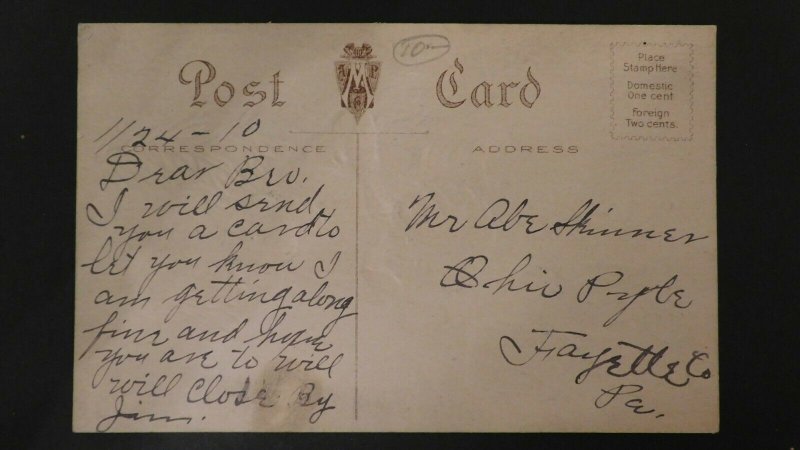 Post Card
10-
Place
Stamp Here
Domestic
One cent
Foreign
Two cents.
11/24-10
CORRESPONDENCE
ADDRESS
Dear Bro.
I will send
you a card to
let you know I
am getting along
fine and hope
you are to will
will close By
Jim.
Mr Abe Skinner
Ohio Pyle
Fayette Co
Pa.